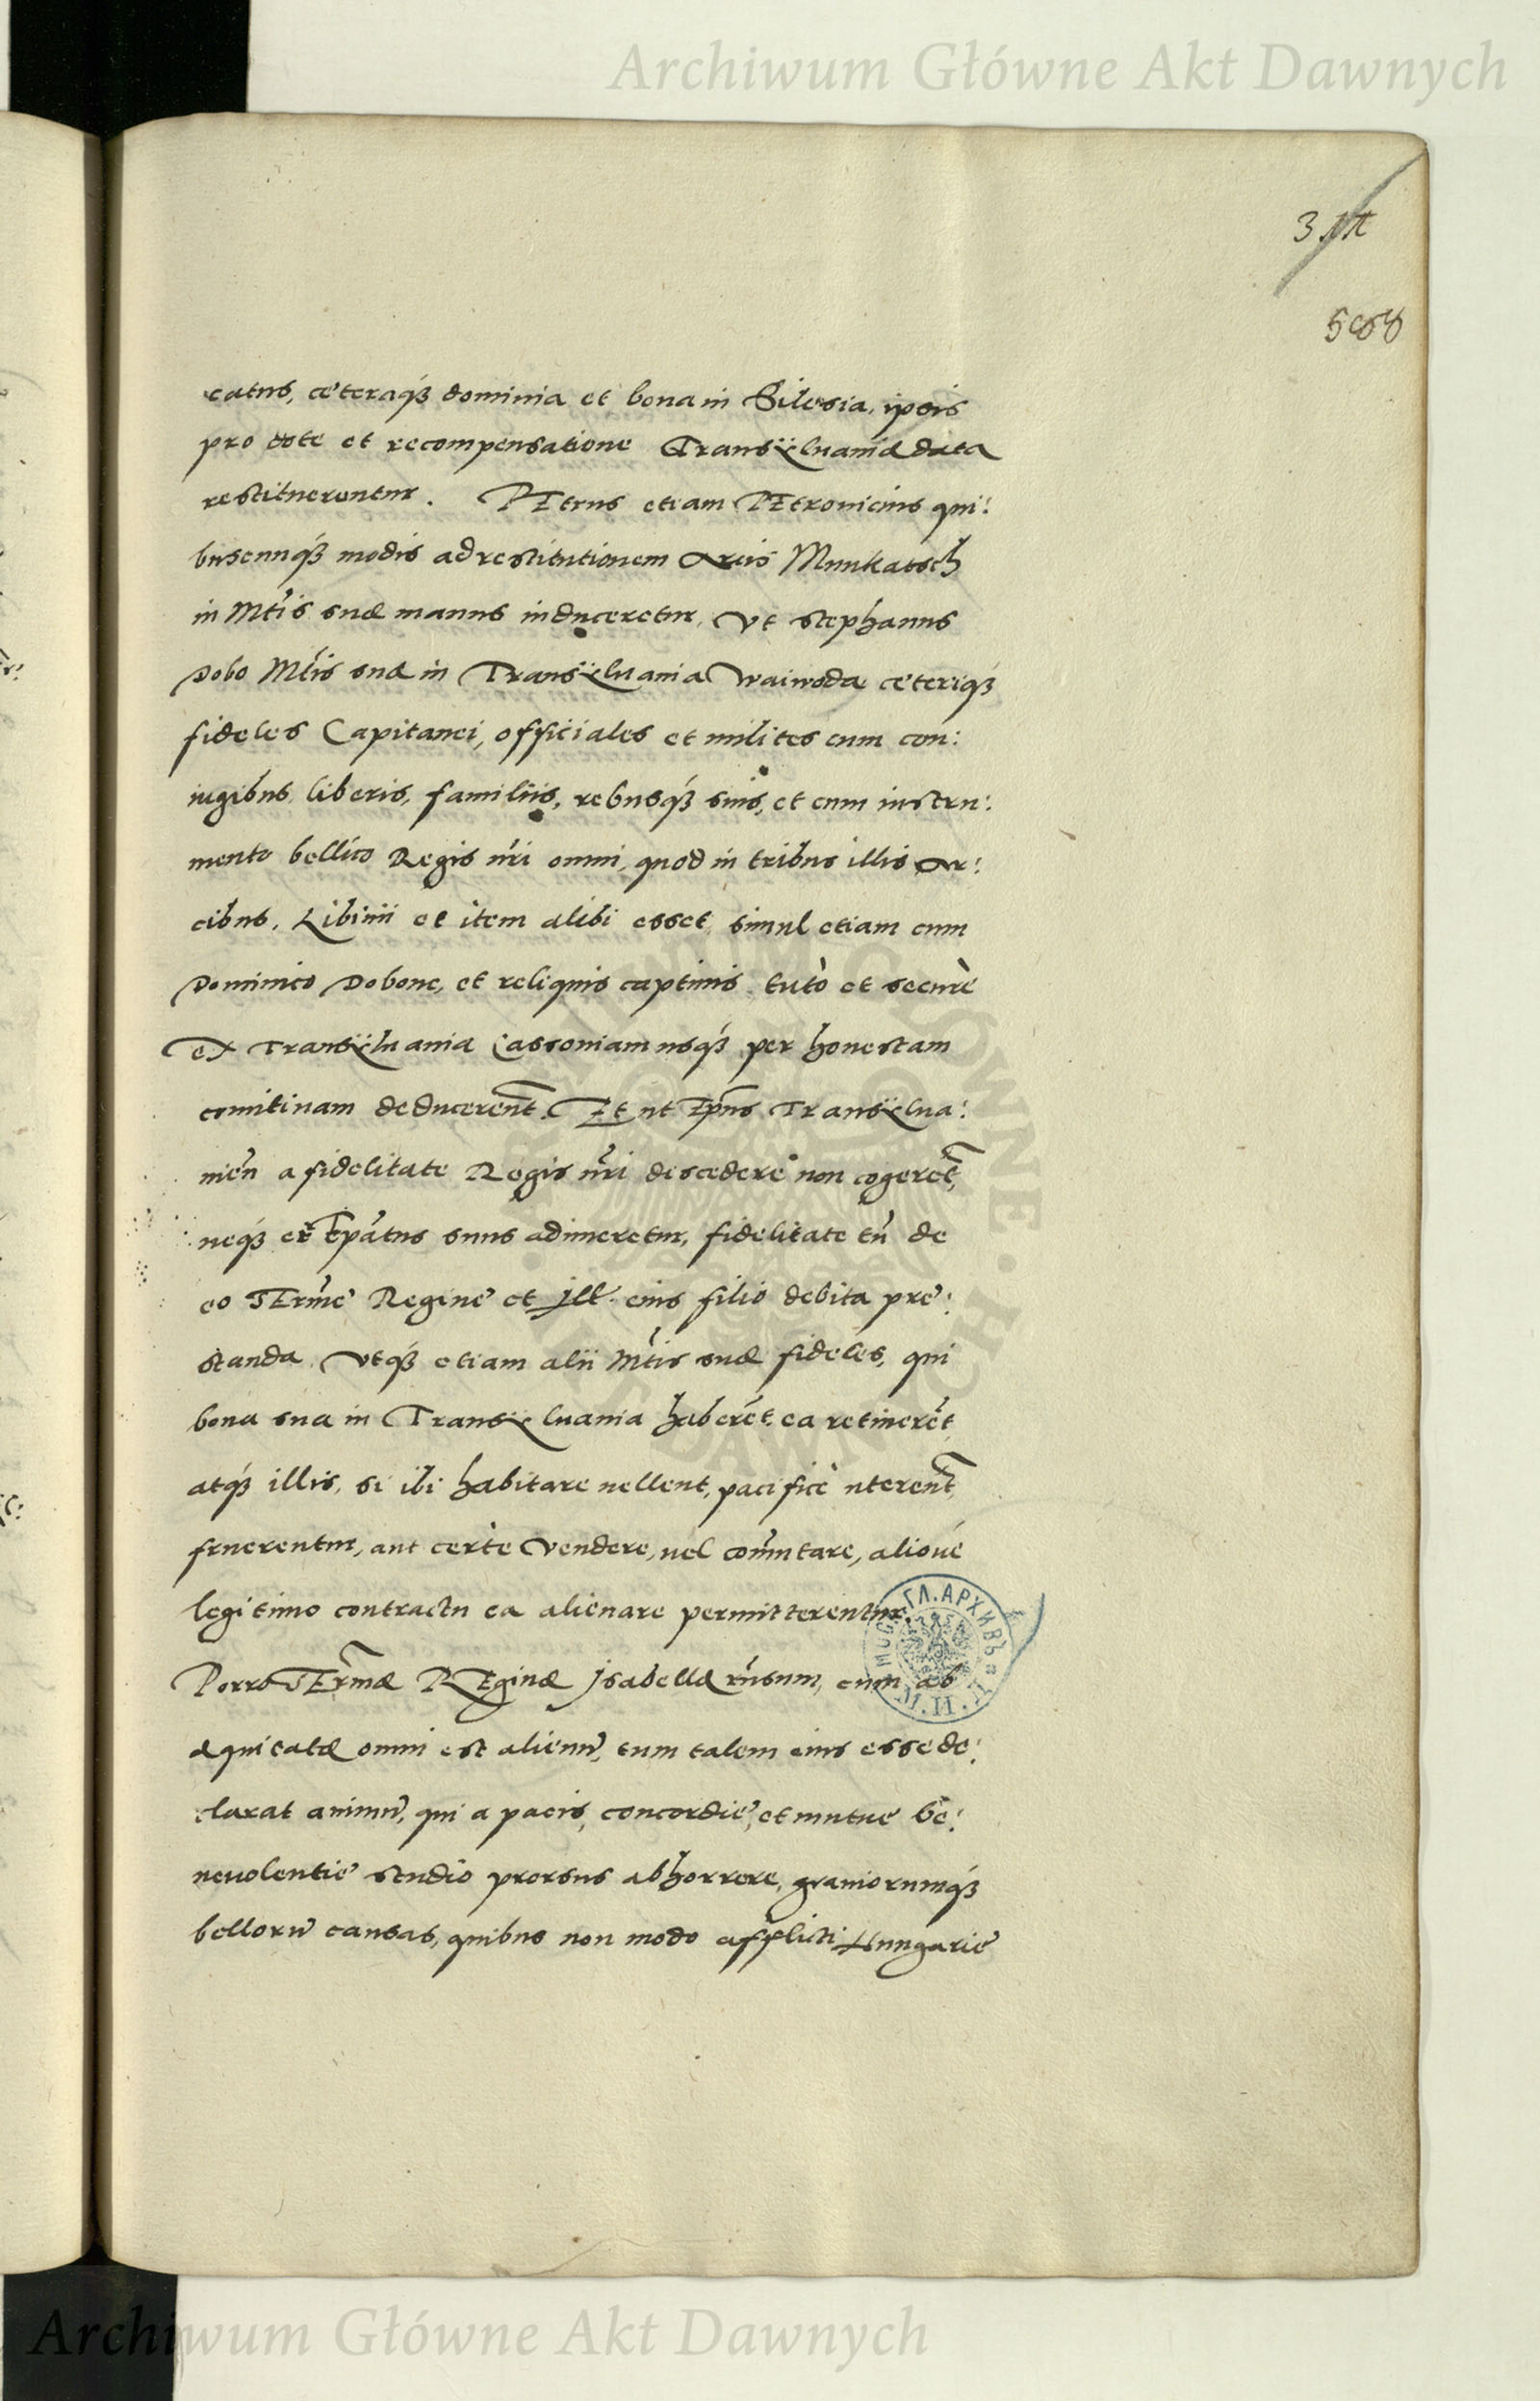 Archiwum Główne Akt Dawnych
508
catus, cęteraq́ꝫ dominia et bona in Silesia, ipsis
pro dote et recompensatione Transÿluaniæ data
restituerentur. PEtrus etiam PEtrouicius qui:
buscunq́ꝫ modis ad restitutionem Arcis Munkatsch
in Mt̃is suæ manus induceretur, Vt Stephanus
Dobo Mt̃is suæ in Transÿluania Waiwoda cęteriq́ꝫ
fideles Capitanei, officiales et milites cum con:
iugibus, liberis, familiis, rebusq́ꝫ suis, et cum instru:
mento bellico Regis nr̃i omni, quod in tribus illis Ar:
cibus, Libinii et item alibi esset, simul etiam cum
Dominico Dobone, et reliquis captiuis tutò et securè
ex Transÿluania Cassouiam usq́ꝫ per honestam
comitiuam deducerent̃. Et ut Ep̃us Transÿlua:
nieñ a fidelitate Regis nr̃i discedere non cogeret̃,
neq́ꝫ ei Ep̃atus suus adimeretur, fidelitate tñ de
eo SEr̃me Reginę et Ill. eius filio debita prę:
standa. Vtq́ꝫ etiam alii Mt̃is suæ fideles, qui
bona sua in Transÿluania haber̃et, ea retiner̃et,
atq́ꝫ illis, si ibi habitare uellent, pacificè uterent̃,
fruerentur, aut certè Vendere, uel com̃utare, alioue
legitimo contractu ea alienare permitterentur.
Porro SEr̃mæ REginæ Isabellæ rñsum, cum ab
æquitate omni est alienũ, tum talem eius esse de:
clarat animũ, qui a pacis, concordię, et mutuę be:
neuolentię studio prorsus abhorrere, grauiorumq́ꝫ
bellorũ causas, quibus non modo afflicti Hungarię
ГЛ. АРХИВЪ
Archiwum Główne Akt Dawnych